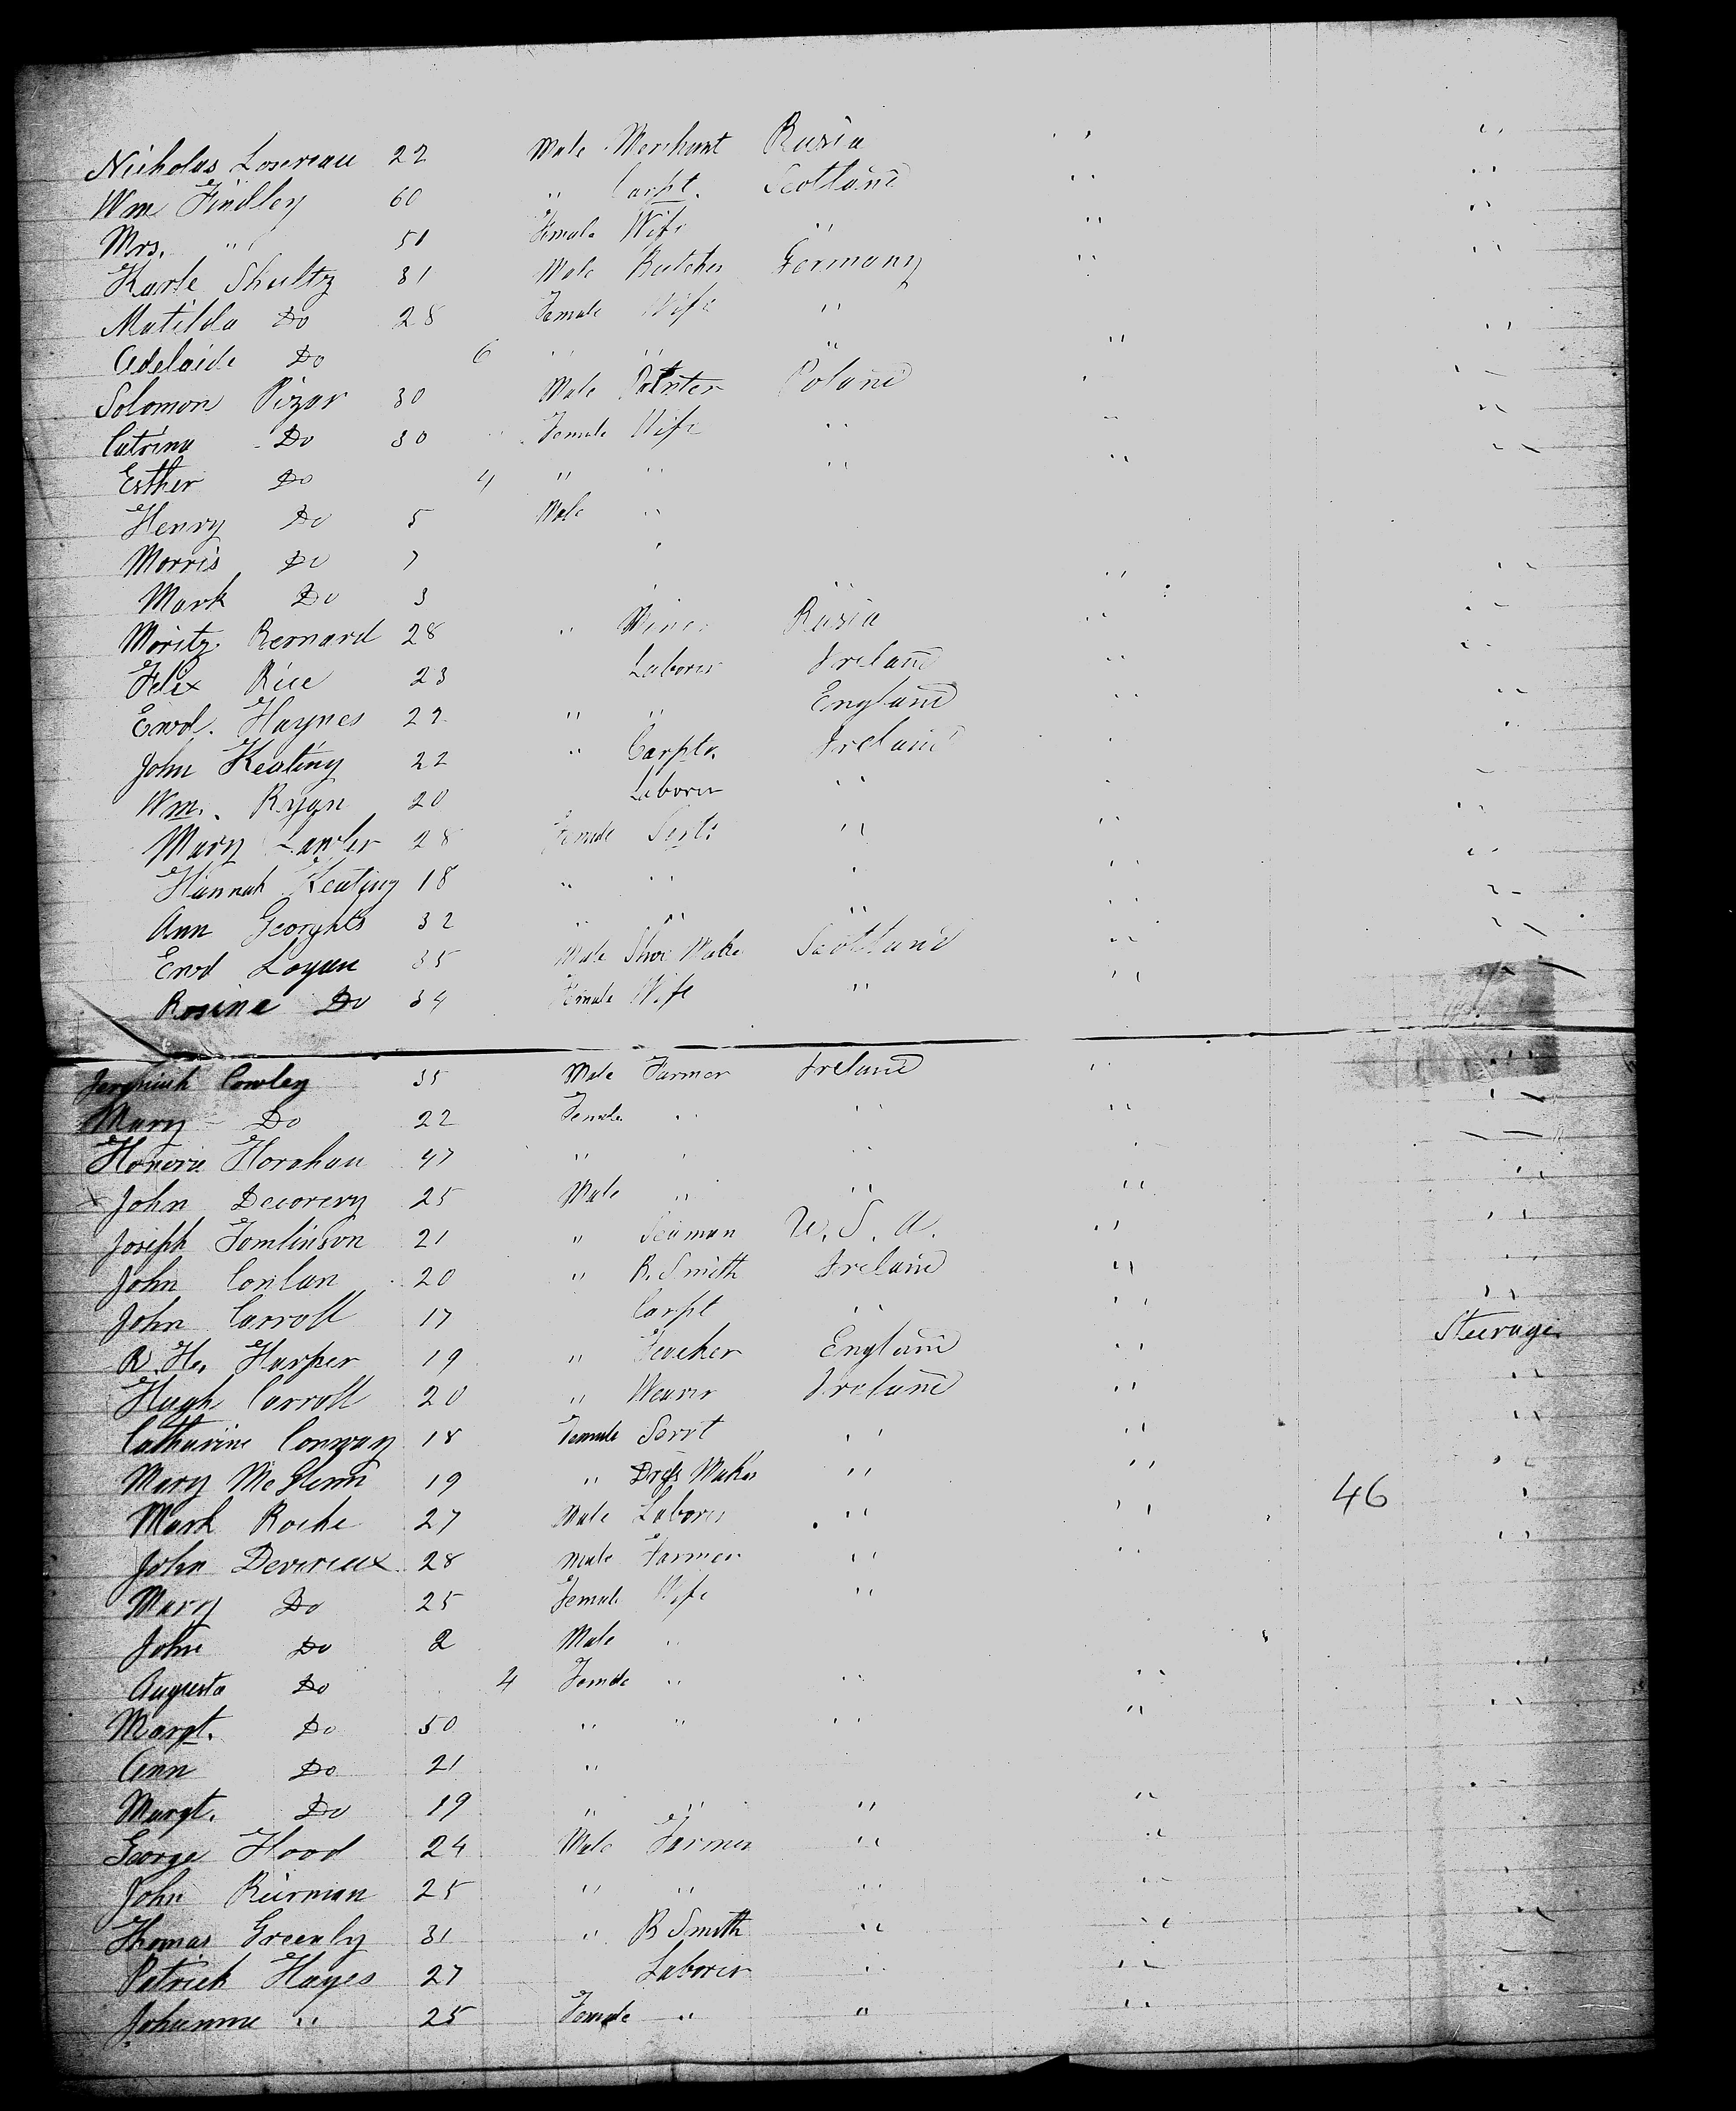 Nicholas Losereau 22 Male Merchant Rusia " "
Wm Findley 60 " Carpt. Scotland " "
Mrs. " 51 Female Wife " " "
Karle Shultz 31 Male Butcher Germany " "
Matilda Do 28 Female Wife "
Adelaide Do 6 " " " " "
Solomon Pizar 30 Male Painter Poland " "
Catrina Do 30 Female Wife " " "
Esther Do 4 " " " "
Henry Do 5 Male "
Morris Do 7 "
Mark Do 3 " " " "
Moritz Bernard 28 " Miner Rusia " "
Felix Rice 23 Laborer Ireland " "
Ewd. Haynes 22 " " England " "
John Keating 22 " Carptr. Ireland " "
Wm. Ryan 20 Laborer " " "
Mary Lawler 28 Female Sert: " " "
Hannah Keating 18 " " " " "
Ann 32 " " " " "
Ewd Logan 35 Male Shoe Make Scotland " "
Rosine Do 34 Female Wife " " "
Jeremiah Cowley 35 Male Farmer Ireland " "
Mary Do 22 Female " " " "
Honora Horahan 47 " " " "
x John Decorery 25 Male " " " "
Joseph Tomlinson 21 " Seaman U. S. A. " "
John Conlan 20 " B. Smith Ireland " "
John Carroll 17 Carpt " " "
R. H. Harper 19 " Teacher England " Steerage
Hugh Carroll 20 " Weaver Ireland " "
Catharine Conway 18 Female Servt " " "
Mary McGlenn 19 " Dress Maker " " "
Mark Roche 27 Male Laborer " " 46 "
John Devereux 28 Male Farmer " " "
Mary Do 25 Female Wife "
John Do 2 Male "
Augusta Do 4 Female " " " "
Margt. Do 50 " " " " "
Ann Do 21 "
Margt. Do 19 " " " " "
George Hood 24 Male Farmer " "
John Rüirman 25 " " " " "
Thomas Greenly 31 " B Smith " " "
Patrick Hayes 27 Laborer " " "
Johanna " 25 Female " " " "